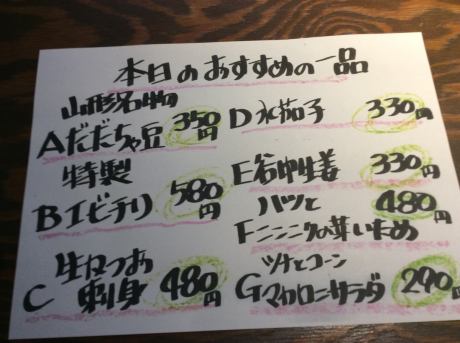 本日のおすすめの一品
山形名物
Aだだちゃ豆 350円
特製
Bエビチリ 580円
生かつお
C 刺身 480円
D水茄子 330円
E谷中生姜 330円
ハツと
Fニンニクの芽いため 480円
ツナとコーン
Gマカロニサラダ 290円